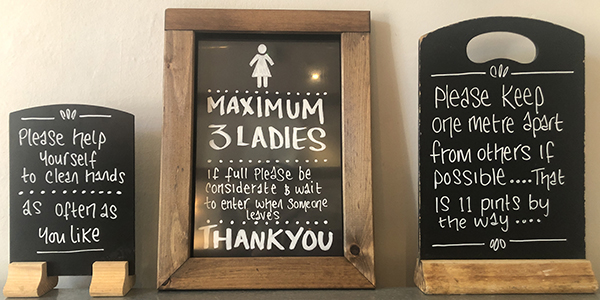 Please help
yourself
to clean hands
as often as
you like
MAXIMUM
3 LADIES
if full please be
considerate & wait
to enter when someone
leaves
THANKYOU
Please Keep
one metre apart
from others if
possible....That
is 11 pints by
the way....